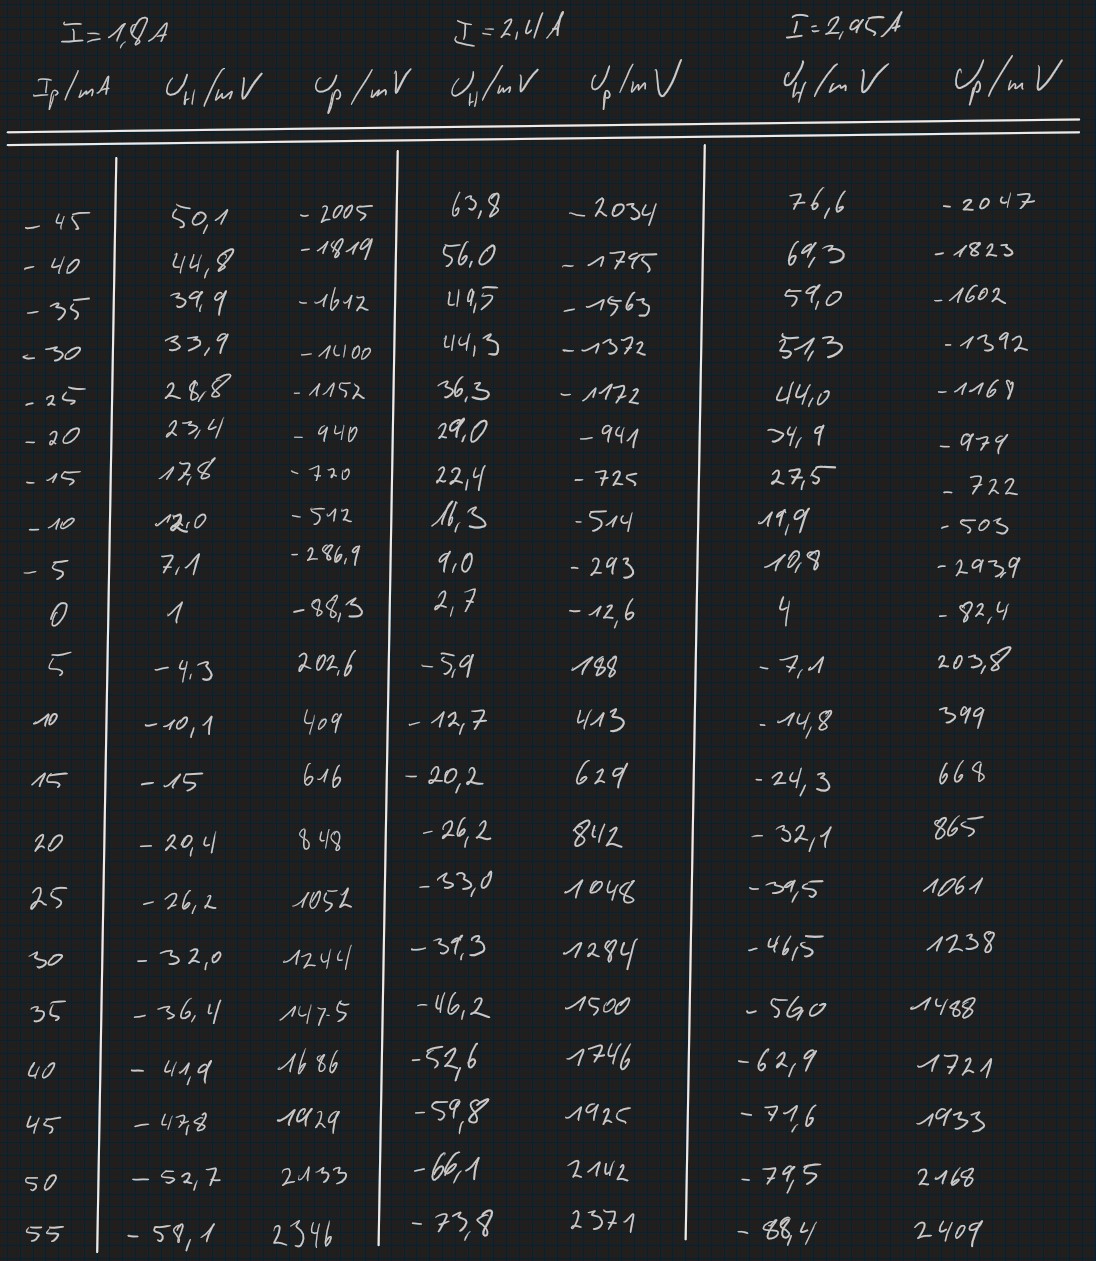 I=1,8A I=2,4A I=2,95A
Ip/mA UH/mV Up/mV UH/mV Up/mV UH/mV Up/mV
-45 50,1 -2005 63,8 -2034 76,6 -2047
-40 44,8 -1819 56,0 -1795 69,3 -1823
-35 39,9 -1612 49,5 -1563 59,0 -1602
-30 33,9 -1400 44,3 -1372 51,3 -1392
-25 28,8 -1152 36,3 -1172 44,0 -1168
-20 23,4 -940 29,0 -941 34,9 -979
-15 17,8 -720 22,4 -725 27,5 -722
-10 12,0 -512 16,3 -514 19,9 -503
-5 7,1 -286,9 9,0 -293 10,8 -293,9
0 1 -88,3 2,7 -12,6 4 -82,4
5 -4,3 202,6 -5,9 188 -7,1 203,8
10 -10,1 409 -12,7 413 -14,8 399
15 -15 616 -20,2 629 -24,3 668
20 -20,4 848 -26,2 842 -32,1 865
25 -26,2 1052 -33,0 1048 -39,5 1061
30 -32,0 1244 -39,3 1284 -46,5 1238
35 -36,4 1475 -46,2 1500 -56,0 1488
40 -41,9 1686 -52,6 1746 -62,9 1721
45 -47,8 1929 -59,8 1925 -71,6 1933
50 -52,7 2133 -66,1 2142 -79,5 2168
55 -58,1 2346 -73,8 2371 -88,4 2409